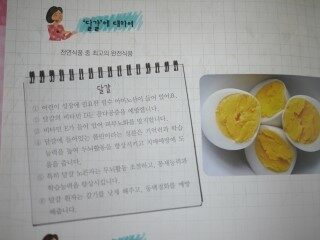 '달걀'에 대하여
천연식품 중 최고의 완전식품
달걀
① 어린이 성장에 필요한 필수 아미노산이 들어 있어요.
② 달걀의 비타민 D는 골다공증을 예방합니다.
③ 비타민 E가 들어 있어 피부노화를 방지합니다.
④ 달걀에 들어있는 콜린이라는 성분은 기억력과 학습
능력을 높여 두뇌활동을 향상시키고 치매예방에 도
움을 줍니다.
⑤ 특히 달걀 노른자는 두뇌활동 조절하고, 문제능력과
학습능력을 향상시킵니다.
⑥ 달걀 흰자는 감기를 낫게 해주고, 동맥경화를 예방
해줍니다.